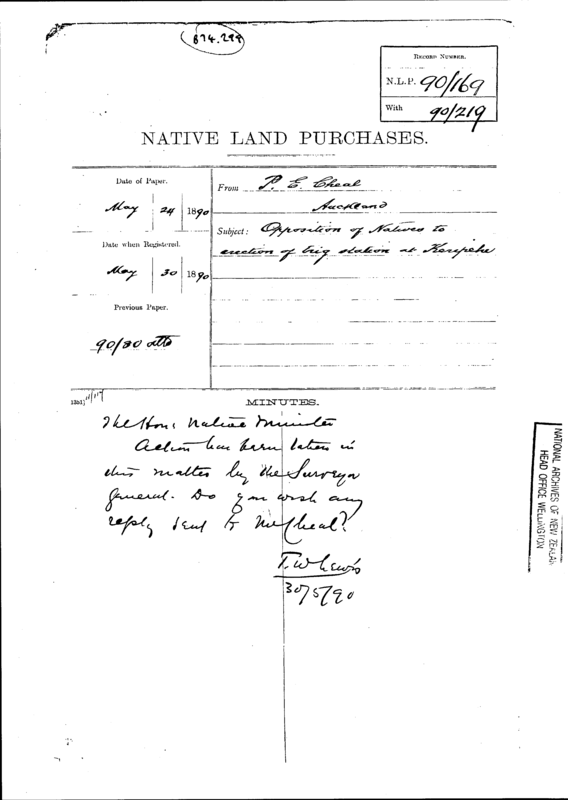 874.299
RECORD NUMBER.
N.L.P. 90/169
With 90/219
NATIVE LAND PURCHASES.
Date of Paper.
May 24 1890
Date when Registered.
May 30 1890
Previous Paper.
90/80 atto
From P. E. Cheal
Auckland
Subject: Opposition of Natives to
erection of trig station at Kerepehi
MINUTES.
The Hon. Native Minister
Action has been taken in
this matter by the Surveyor
General. Do you wish any
reply sent to Mr Cheal?
T. W. Lewis
30/5/90
NATIONAL ARCHIVES OF NEW ZEALAN
HEAD OFFICE WELLINGTON